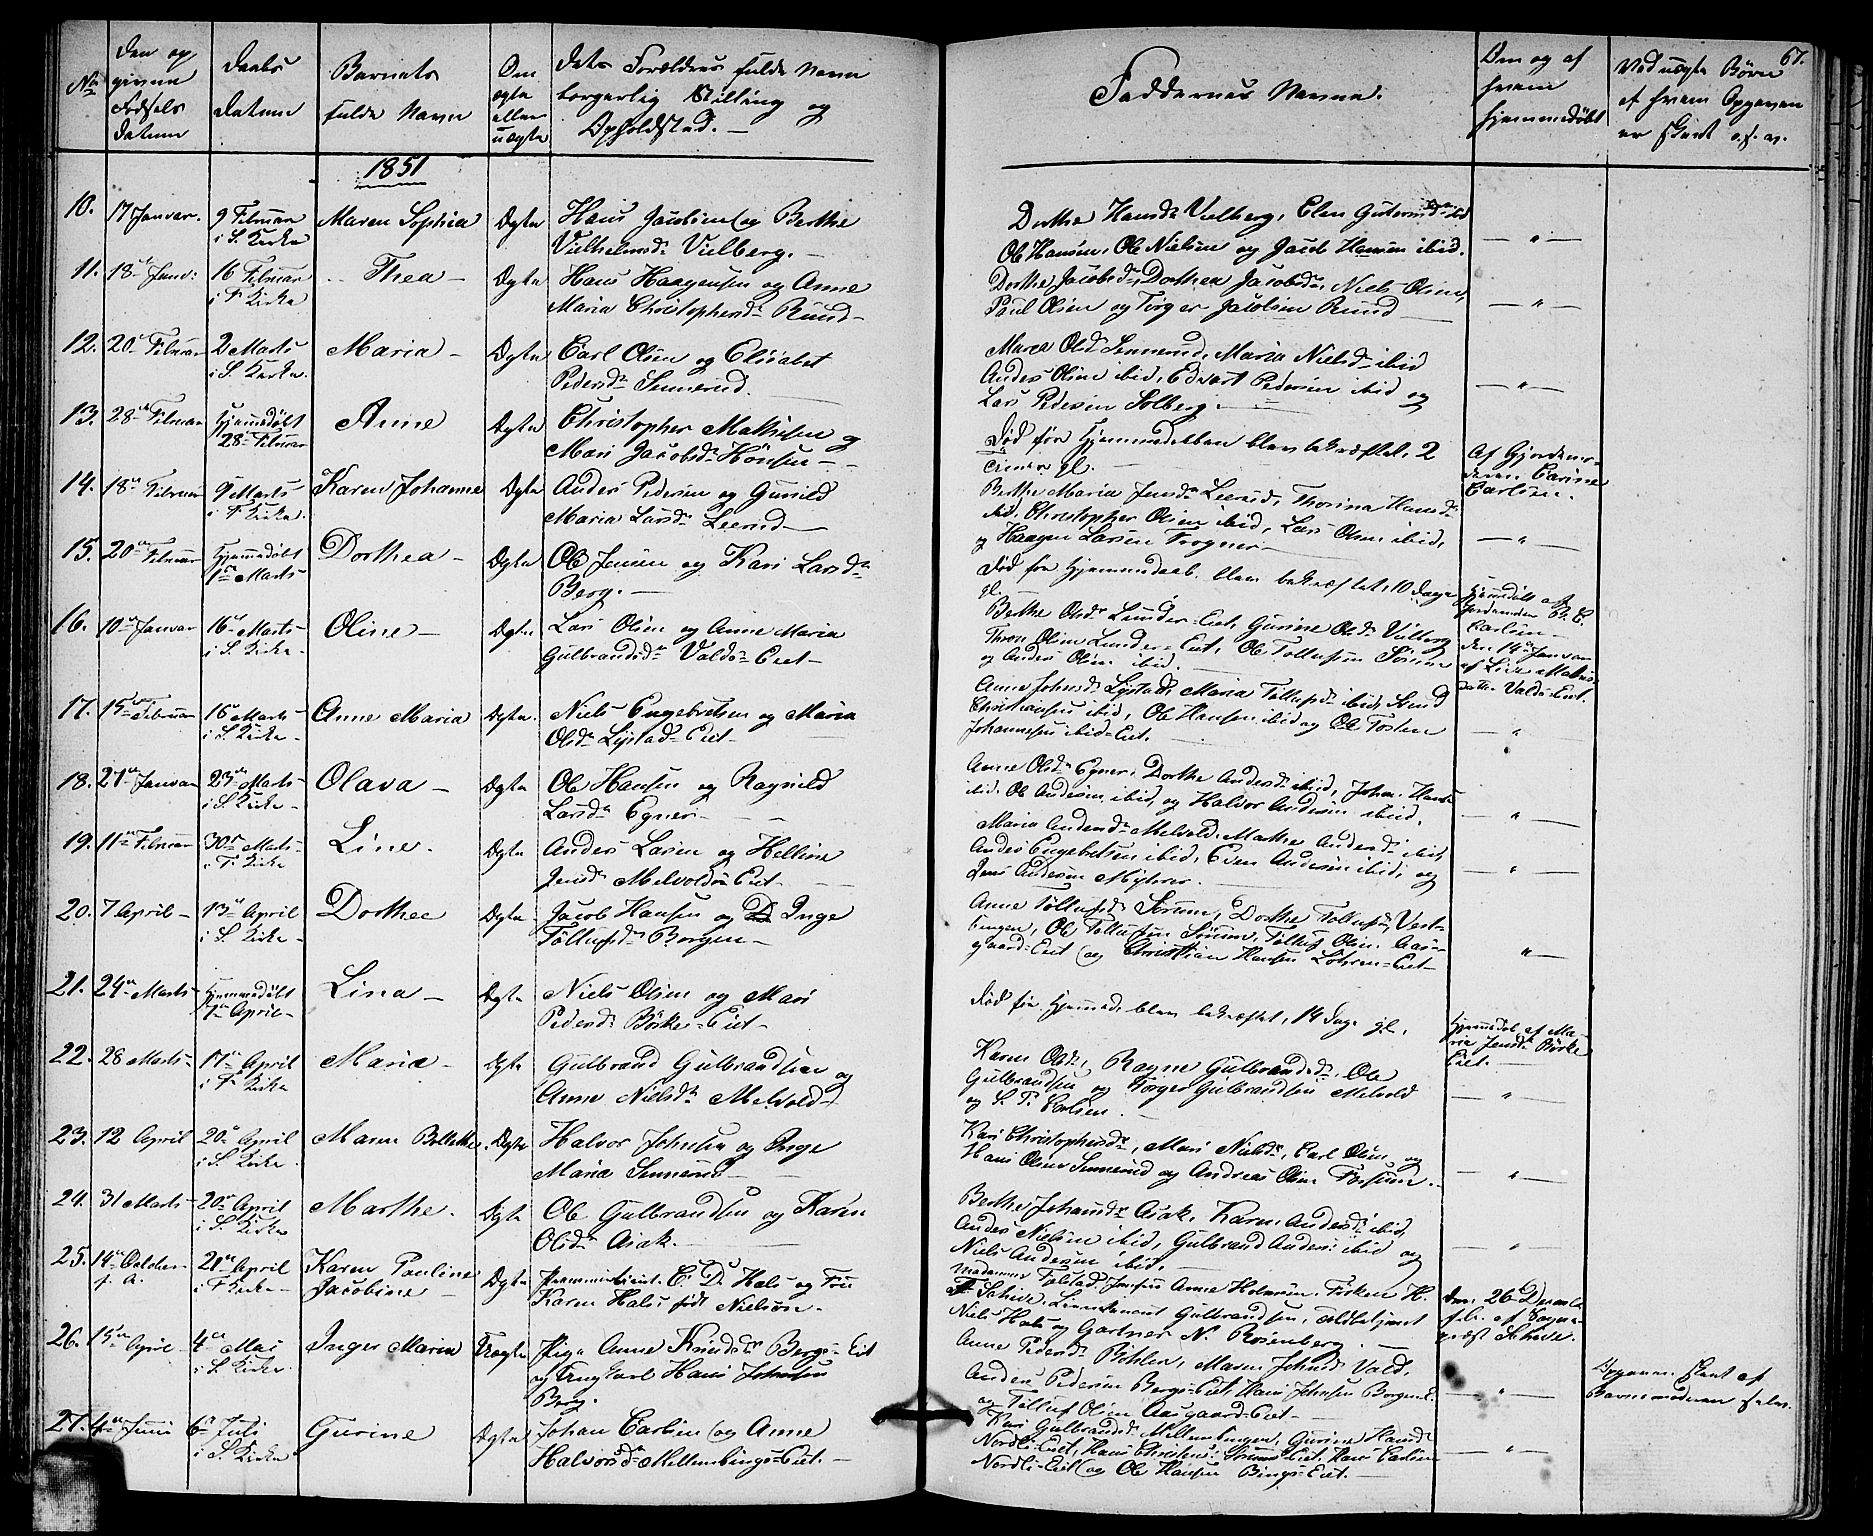 67.
No
Den op
givne
Fødsels
Datum
Daabs
Datum
Barnets
fulde Navn
Om
ægte
eller
uægte
dets Forældres fulde Navn
borgerlig Stilling og
Opholdsted. –
Faddernes Navne.
Om og af
hvem
hjemmedøbt
Ved uægte Børn
af hvem Opgaven
er skeet o.s.v.
1851
10. 17 Januar. 9 Februar Maren Sophia Ægte Hans Jacobsen og Berthe
i S. Kirke Vilhelmsd: Vulberg. –
Dorthe Hansd: Vulberg, Elen
Ole Hansen, Ole Nielsen og Jacob Hansen ibid. — " —
11. 18 Janv: 16 Februar Thea – Ægte Hans Haagensen og Anne
i F Kirke Maria Christophersd: Rund –
Dorthe Jacobsd:, Dorthea Jacobsd:, Niels Olsen,
Paul Olsen og Torger Jacobsen Rund — " —
12. 20 Februar 2 Marts Maria – Ægte Carl Olsen og Elisabet
i S. Kirke. Pedersd: Sennerud.
Maren Olsd: Sennerud, Maria Nielsd: ibid
Anders Olsen ibid, Edvart Pedersen ibid og — " —
Lars Pedersen Solberg. –
13. 28 Februar Hjemmedøbt Anne Ægte Christopher Mathisen og
28 Februar Mari Jacobsd: Hønsen –
Død før Hjemmedaaben blev bekræftet, 2
gl. –
Af Gjordemo-
deren Carine
Carlsen.
14. 18 Februar 9 Marts Karen Johanne Ægte Anders Pedersen og Gunild
i F Kirke. Maria Larsd: Leerud –
Berthe Maria Jensd: Leerud, Thorina Hansd:
ibid, Christopher Olsen ibid, Lars Olsen ibid,
og Haagen Larsen Frogner – — " —
15. 20 Februar Hjemmedøbt Dorthea – Ægte Ole Jensen og Kari Larsd:
1 Marts Berg. –
Død før Hjemmedaab. blev bekræftet, 10 Dage
gl. –
Hjemmedøbt af
Carlsen –
16. 10 Januar 16 Marts Oline – Ægte Lars Olsen og Anne Maria
i S. Kirke – Gulbrandsd: Valds-Eiet –
Berthe Olsd: Lunder-Eiet, Gurine Olsd: Vulberg
Thron Olsen Lunder-Eiet, Ole Tollefsen Sørum
og Anders Olsen ibid.
den 14 Januar
Valds-Eiet.
17. 15 Februar 16 Marts Anne Maria Ægte. Niels Engebretsen og Maria
i S Kirke – Olsd: Lystad-Eiet –
Anne Johnsd: Lystad, Maria Tollefsd: ibid,
Christiansen ibid, Ole Hansen ibid og Ole Tosten
Johannesen ibid-Eiet. "
18. 27 Januar 23 Marts Olava – Ægte Ole Hansen og Ragnild
i S. Kirke – Larsd: Egner –
Anne Olsd: Egner, Dorthe Andersd: ibid, Johan Hansen
ibid, Ole Andersen ibid, og Halvor Andersen ibid. — " —
19. 11 Februar 30 Marts Line. Ægte Anders Larsen og Helline
i F. Kirke Jensd: Melvolds Eiet –
Maria Andersd: Melvold, Marthe Andersd: ibid,
Anders Engebretsen ibid, Even Andersen ibid, og
Jens Andersen Myhrer. — " —
20. 7 April – 13 April Dorthee Ægte Jacob Hansen og Inge
i S. Kirke – Tollefsd: Borgen –
Anne Tollefsd: Sørum, Dorthe Tollefsd: Vest-
bingen, Ole Tollefsen Sørum, Tollef Olsen Aas-
gaard-Eiet og Christian Hansen Løhren-Eiet – "
21. 24 Marts Hjemmedøbt Lina – Ægte Niels Olsen og Mari
7 April – Pedersd: Børke-Eiet –
Død før Hjemmed. blev bekræftet, 14 Dage gl.
Hjemmedøbt af Ma-
ria Jensd: Børke
Eiet. –
22. 28 Marts – 17 April Maria – Ægte Gulbrand Gulbrandsen og
i F Kirke Anne Nielsd: Melvold –
Karen Olsd:, Ragne Gulbrandsd:, Ole
Gulbrandsen og Torger Gulbrandsen Melvold
og S. P. Carlsen. — " —
23. 12 April 20 April Maren Bollette Ægte Halvor Johnsen og Inge
i S. Kirke Maria Sennerud –
Kari Christophersd:, Mari Nielsd:, Carl Olsen og
Hans Olsen Sennerud og Andreas Olsen Fossum. — " —
24. 31 Marts – 20 April Marthe. Ægte Ole Gulbrandsen og Karen
i S. Kirke Olsd: Asak. –
Berthe Johansd: Asak, Karen Andersd: ibid,
Anders Nielsen ibid, Gulbrand Anders: ibid og
Niels Andersen ibid. — " —
25. 14 October 21 April Karen Pauline Ægte C. D. Hals og Fru
f. A. i F Kirke – Jacobine – Karen Hals født Nielsen. –
Madamme Jensen Anne Holmsen, Frøken H.
Schive, Gulbrandsen,
Niels Hals og Gartner N. Rosenberg. –
den 26 Decemb.
Schive.
26. 15 April 4 Mai Inger Maria Uægte Pige Anne Knudsd: Bergs-Eiet
i S. Kirke. og Ungkarl Hans Johnsen
Berg.
Anne Pedersd: Bøhler, Maren Johnsd: Vald,
Anders Pedersen Bergs-Eiet, Hans Johnsen Borgen
og Tollef Olsen Aasgaard-Eiet – — " —
Opgaven skeet af
Barnemoderen selv.
27. 4 Juni 6 Juli Gurine Ægte Johan Carlsen og Anne
i S. Kirke Halvorsd: Mellembings-Eiet. –
Kari Gulbrandsd: Mellembingen, Gurine Hansd:
Nordli-Eiet, Hans Christens:
Nordli-Eiet og Ole Hansen Bings-Eiet. – — " —